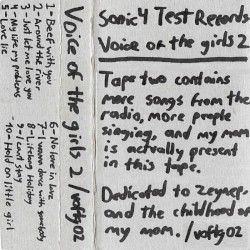 1- Beef with you
2- Around the river
3- Just let me love you
4- My life my problems
5- Love lie
6- No love in love
7- I wanna dance with somebody
8- Lifelong Holiday
9- I cant stay
10- Hold on little girl
Voice of the girls 2 /voftg02
Sonic4 Test Records
Voice of the girls 2
Tape two contains
more songs from the
radio, more people
singing, and my mom
is actually present
in this tape.
Dedicated to Zeynep,
and the childhood of
my mom. /voftg02